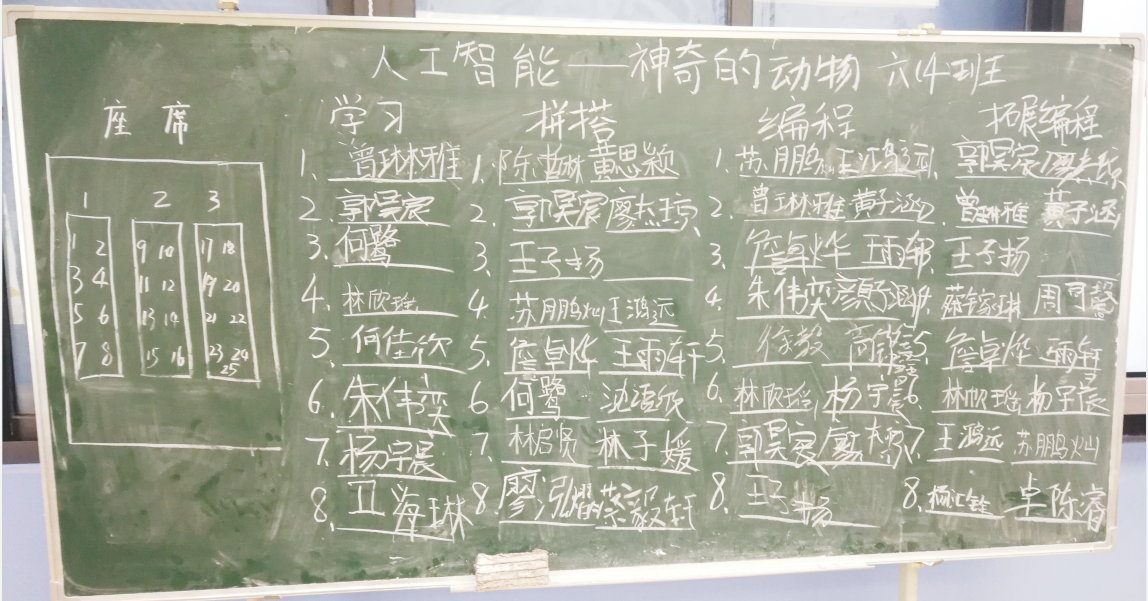 人工智能——神奇的动物 六(4)班
座席
1 2 3
1 2 9 10 17 18
3 4 11 12 19 20
5 6 13 14 21 22
7 8 15 16 23 24
25
学习
1、曾琳雅
2、郭昊宸
3、何鹭
4、林欣瑶
5、何佳欣
6、朱伟奕
7、杨宇宸
8、卫海琳
拼搭
1、陈 黄思颖
2、郭昊宸 廖杰琼
3、王子扬
4、苏鹏灿 王鸿远
5、詹卓烨 王雨轩
6 何鹭 沈欣
7、林启贤 林子媛
8、廖泓耀 蔡毅轩
编程
1、苏鹏灿 王鸿远
2、曾琳雅 黄子涵
3、詹卓烨 王雨轩
4、朱伟奕 颜子涵
5、徐毅
6、林欣瑶 杨宇宸
7、郭昊宸 廖杰琼
8、王子扬
拓展编程
1、郭昊宸 廖杰琼
2、曾琳雅 黄子涵
3、王子扬
4、蔡 琳 周司馨
5、詹卓烨 王雨轩
6、林欣瑶 杨宇宸
7、王鸿远 苏鹏灿
8、杨 卓陈睿